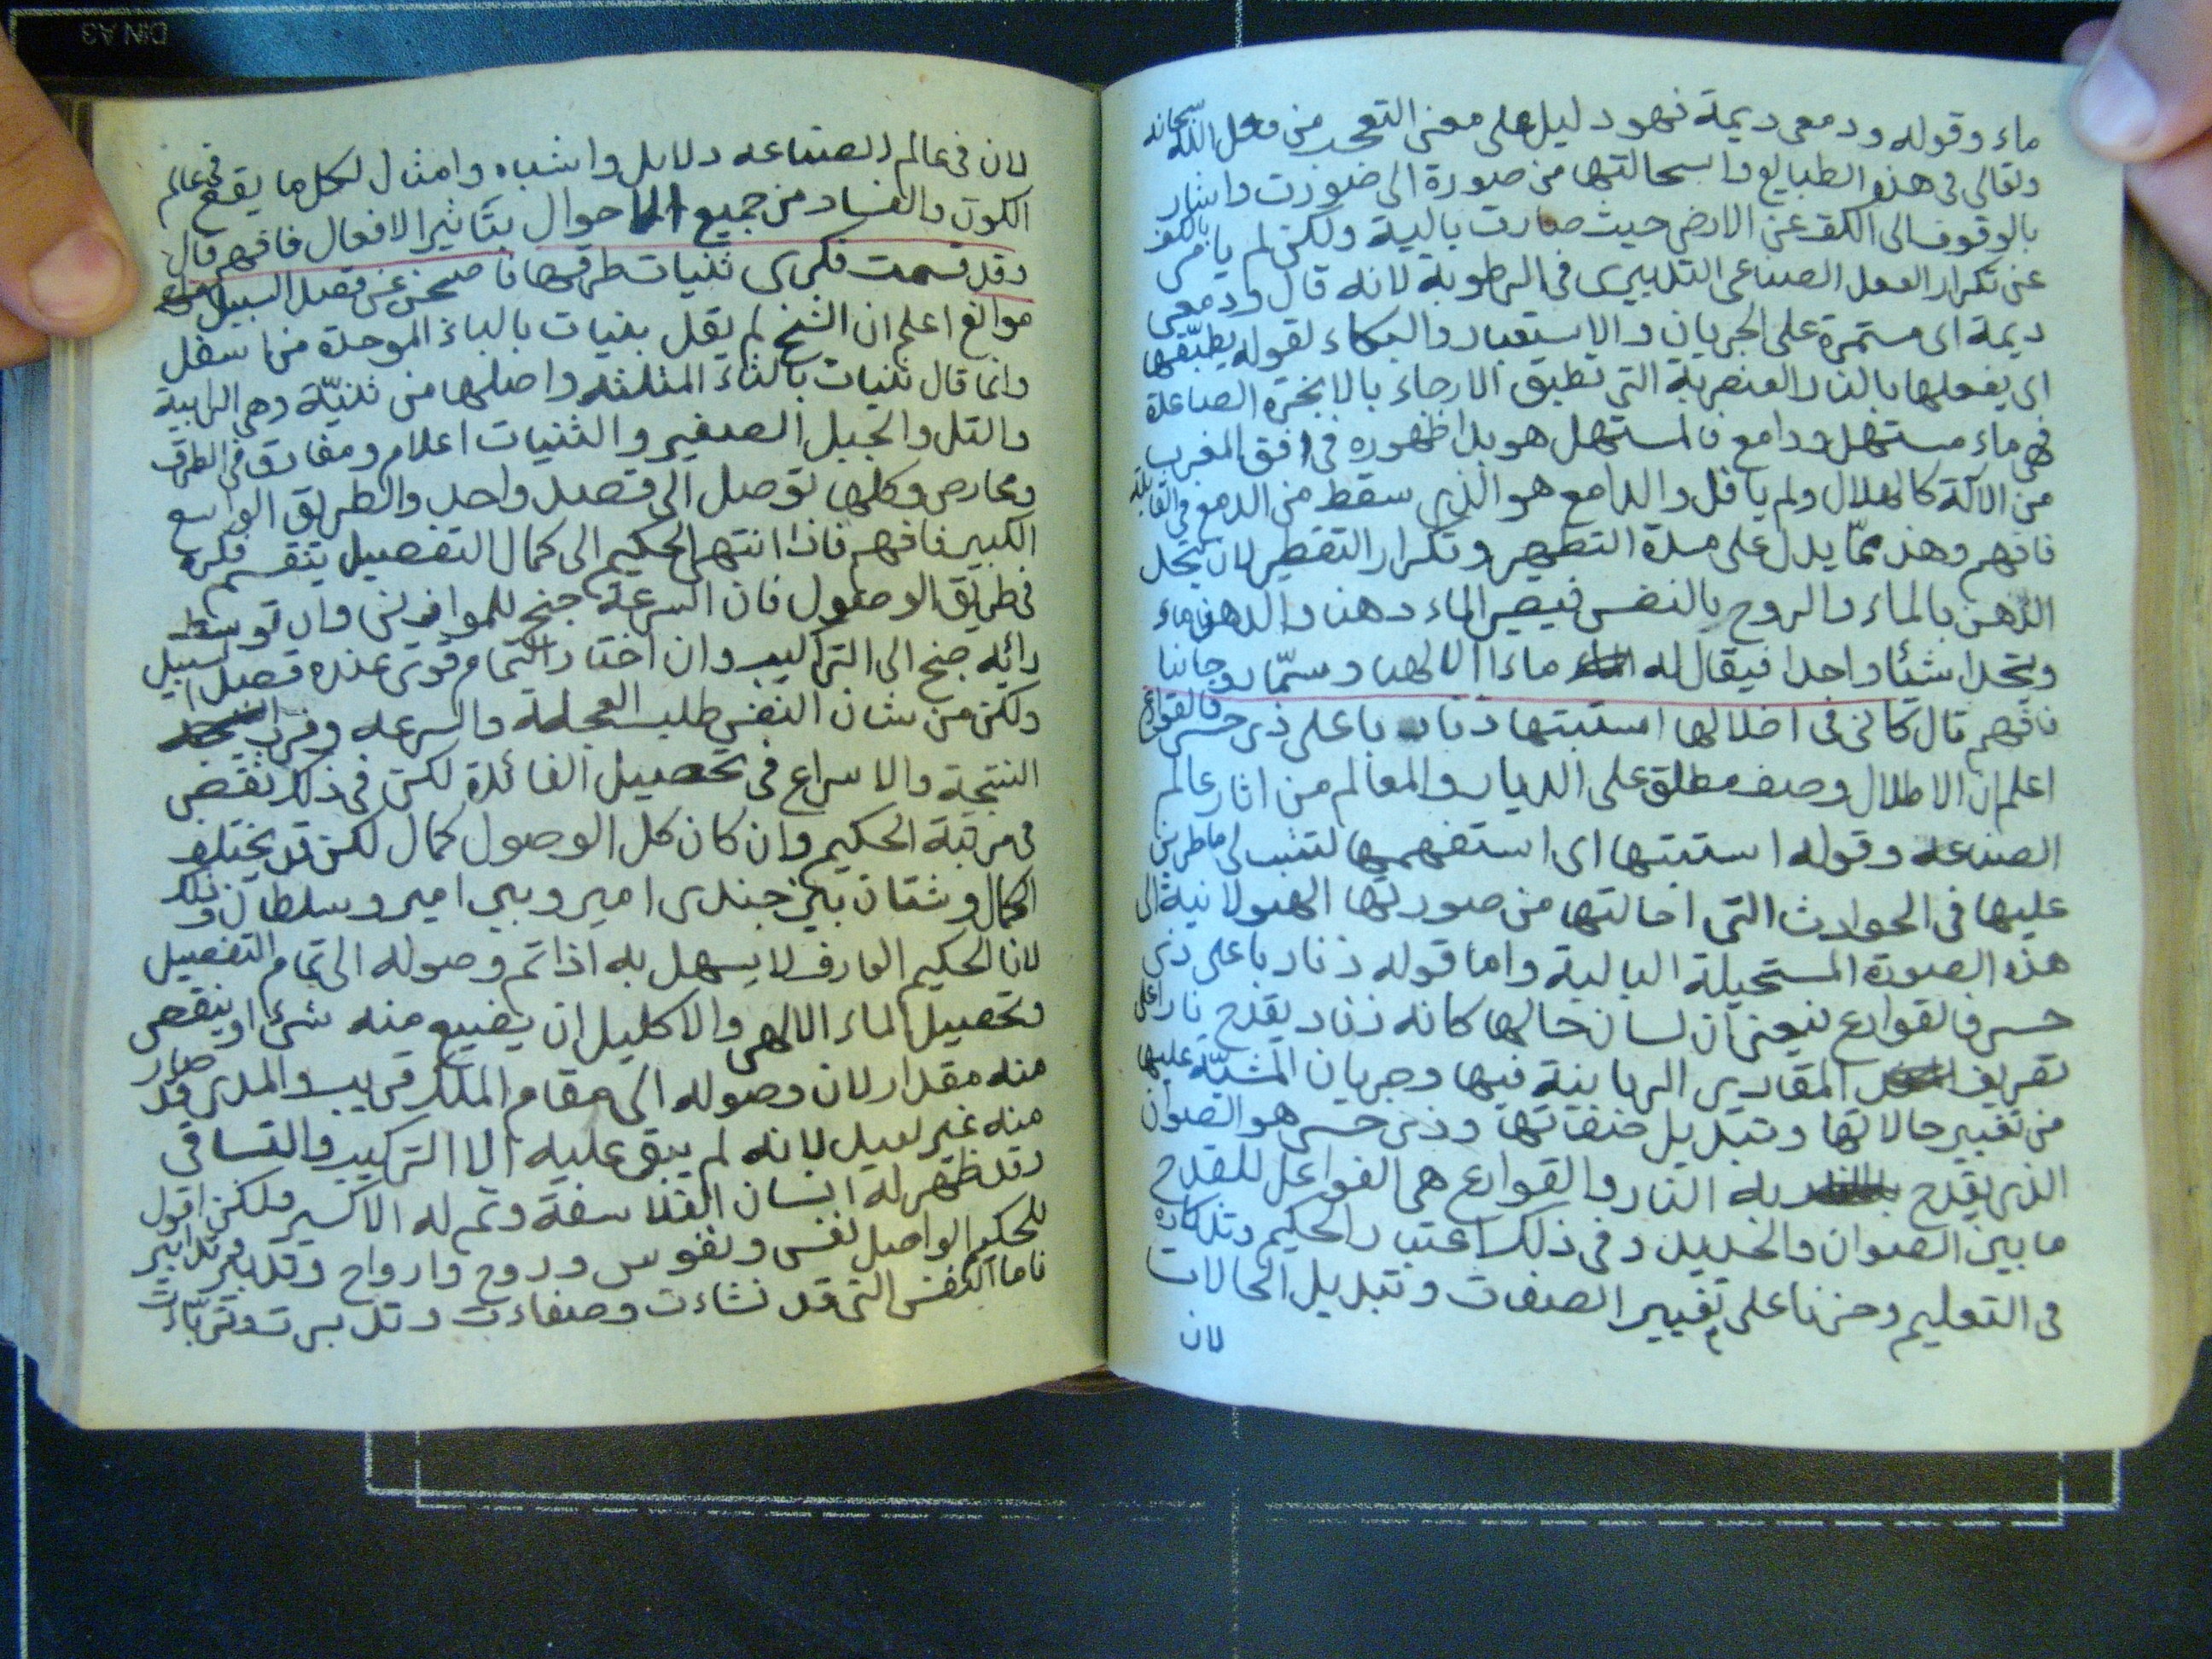 ماء وقوله ودمعى ديمة فهو دليل على معنى التعجب من فعل الله سبحانه
وتعالى فى هذه الطبايع واستحالتها من صورة الى صورت واشار
بالوقوف الى الكف عن الارض حيث صارت بالية ولكن لم يامر بالكف
عن تكرار العمل الصناعى التدبيرى فى الرطوبة لانه قال ودمعى
ديمة اى مستمرة على الجريان والاستعبار والبكاء لقوله يطبقها
اى يفعلها بالنار العنصرية التى تطبق الارجاء بالابخرة الصاعدة
فهى ماء مستهل ودامع فالمستهل هو بدا ظهوره فى افق المغرب
من الآلة كالهلال ولم يافل والدامع هو الذى سقط من الدمع فى القابلة
فافهم وهذ مما يدل على مدة التطهير وتكرار التقطير لان يتحل
الدهن بالماء والروح بالنفس فيصير الماء دهنا والدهن ماء
وتحدا شيئا واحدا فيقال له ماءا الالهيا وسما روحانيا
فافهم قال كانى فى اطلالها استبتها زناد باعلى ذى حس فالقوارع
اعلم ان الاطلال وصف مطلق على الديار والمعالم من اثار عالم
الصناعه وقوله استبتها اى استفهمها لتنب لى ما طرين
عليها فى الحوادث التى احالتها من صورتها الهيولانية الى
هذه الصورة المستحيلة البالية واما قوله زناد باعلى ذى
حس فالقوارع فيعنى ان لسان حالها كانه زناد يقدح نارا على
تعريف المقادير الربانية فيها وجريان المشية عليها
من تغيير حالاتها وتبديل صفاتها وذى حس هو الصوان
الذى يقدح به النار والقوارع هى الفواعل للقدح
ما بين الصوان والحديد وفى ذلك اعتبار الحكيم وتذكاره
فى التعليم وحزنا على تغيير الصفات وتبديل الحالات
لان
لان فى عالم الصناعه دلايل واشباه وامثال لكل ما يقع فى عالم
الكون والفساد من جميع الاحوال بتاثير الافعال فافهم قال
وقد قسمت فكرى ثنيات طرقها فاصبحن عن قصد السبيل
موانع اعلم ان الشيخ لم يقل بنيات بالباء الموحدة من اسفل
وانما قال ثنيات بالثاء المثلثه واصلها من ثنية وهى الرابية
والتل والجبل الصغير والثنيات اعلام ومفارق فى الطرق
ومحارص وكلها توصل الى قصد واحد والطريق الواسع
الكبير فافهم فاذا انتهى الحكيم الى كمال التفصيل يتقسم فكره
فى طريق الوصول فان السرعة جنح للموازين وان توسط
رائه جنح الى التراكيب وان اختار التمام قوى عنده قصد السبيل
ولكن من شان النفس طلب العجلة والسرعه وقرب
النتيجة والاسراع فى تحصيل الفائدة لكن فى ذلك نقص
فى مرتبة الحكيم وان كان كل الوصول كمال لكن قد يختلف
الكمال وشتان بين جندى امير وبين امير وسلطان وذلك
لان الحكيم العارف لا يسهل به اذا تم وصوله الى تمام التفصيل
وتحصيل الماء الالهى والاكليل ان يضيع منه شئ او ينقص
منه مقدار لان وصوله الى مقام الملك قريب والمدى قد صار
منه غير بعيد لانه لم يبق عليه الا التركيب والتساقى
وقد ظهر له انسان الفلاسفة وتم له الاكسير ولكن اقول
للحكيم الواصل نفس ونفوس وروح وارواح وتدبير وتدابير
فاما النفس التى قد نشاءت وصفاءت وتدبرت وتربات